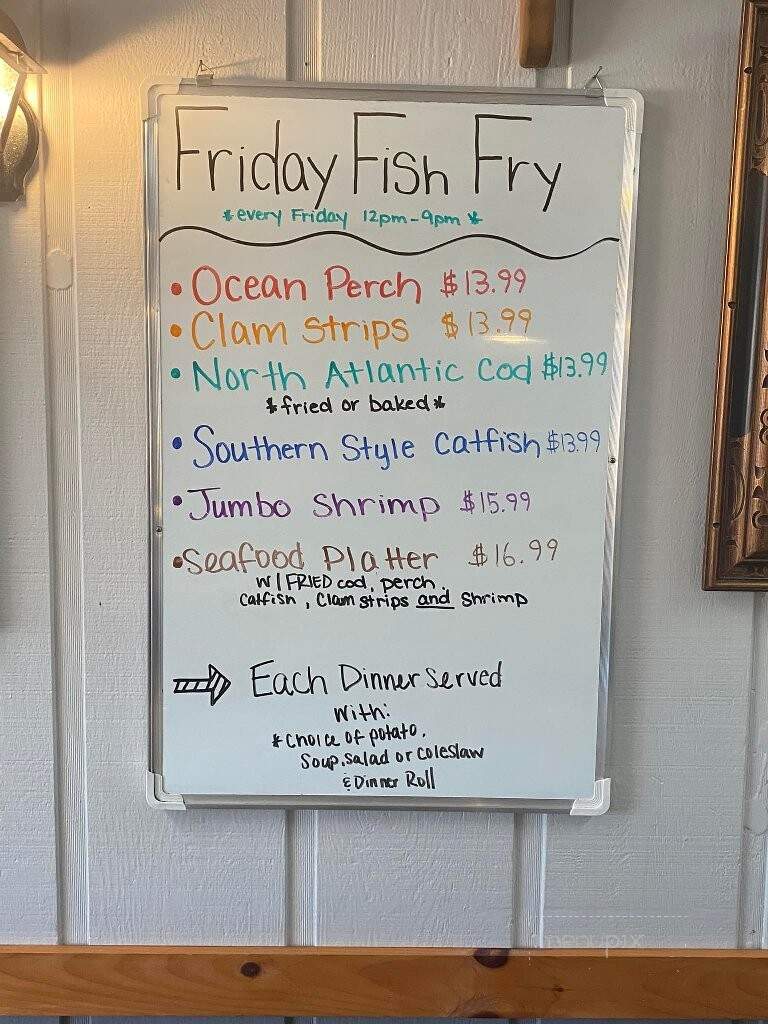 Friday Fish Fry
*every Friday 12pm-9pm*
• Ocean Perch $13.99
• Clam Strips $13.99
• North Atlantic Cod $13.99
*fried or baked*
• Southern Style Catfish $13.99
• Jumbo Shrimp $15.99
• Seafood Platter $16.99
W/ FRIED cod, perch,
catfish, Clam strips and Shrimp
Each Dinner Served
With:
*Choice of potato,
Soup, Salad or Coleslaw
& Dinner Roll
menupix